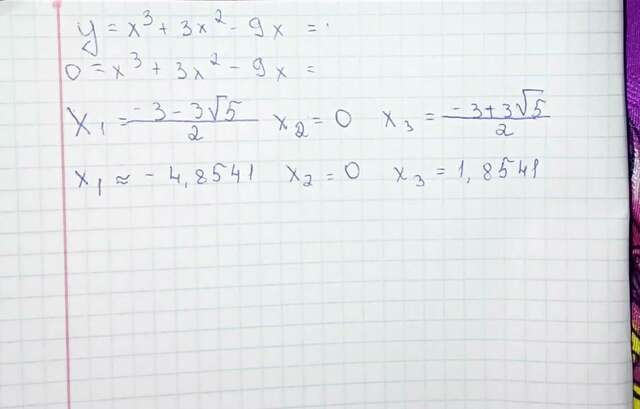 y = x³ + 3x² - 9x =
0 = x³ + 3x² - 9x =
x₁ = (-3 - 3√5)/2 x₂ = 0 x₃ = (-3 + 3√5)/2
x₁ ≈ - 4,8541 x₂ = 0 x₃ = 1,8541